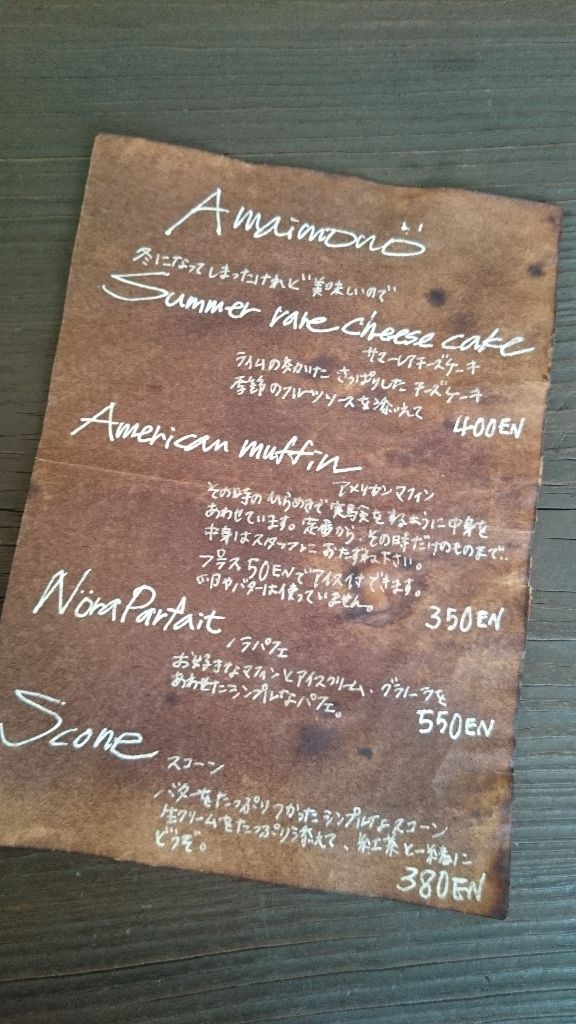 Amaimonö
冬になってしまったけれど美味しいので
Summer rare cheese cake
サマーレアチーズケーキ
ライムの効かけた さっぱりした チーズケーキ
季節のフルーツソースを添えて
400EN
American muffin
アメリカンマフィン
その時のひらめきで実験をするように中身を
あわせています。定番から、その時だけのものまで..
中身はスタッフにおたずね下さい。
プラス50ENでアイス付できます。
バターは使っていません。
350EN
NöraParfait
ノラパフェ
お好きなマフィンとアイスクリーム、グラノーラを
あわせたシンプルなパフェ。
550EN
Scone
スコーン
バターをたっぷりつかったシンプルなスコーン
生クリームをたっぷり添えて、紅茶と一緒に
どうぞ。
380EN